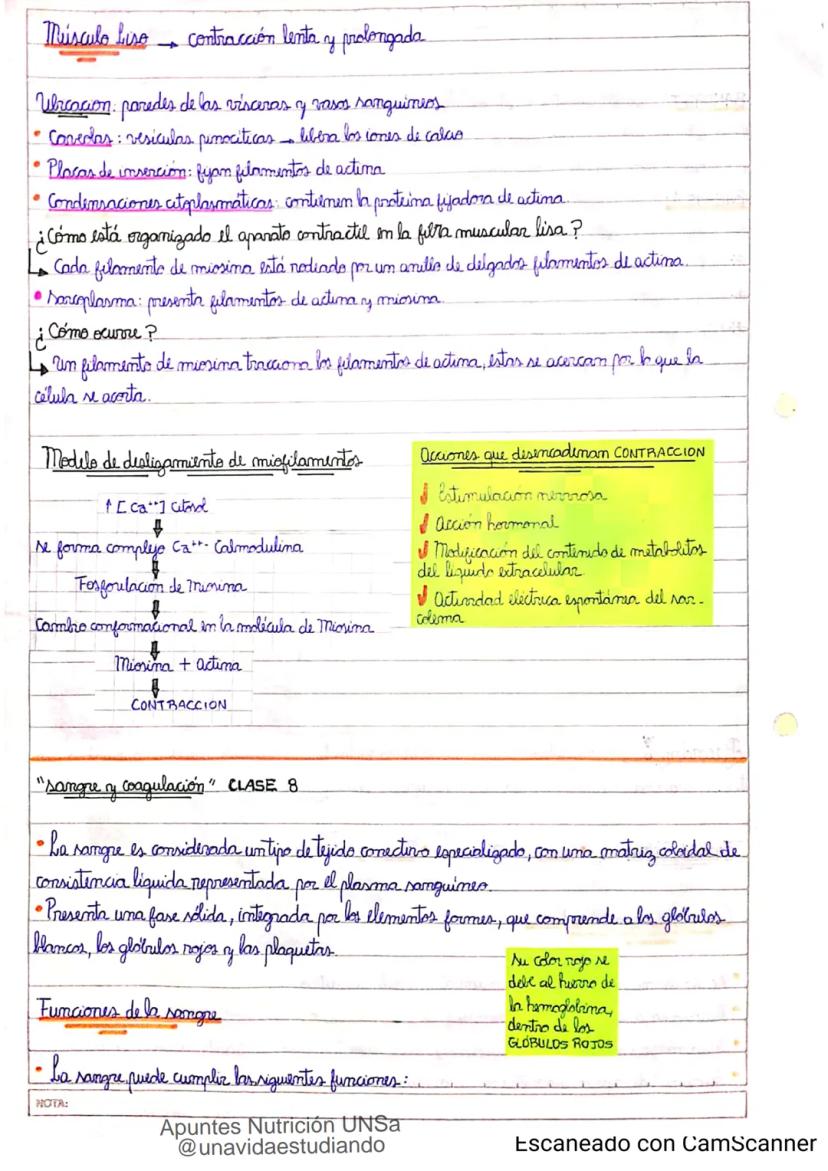 Músculo liso → contracción lenta y prolongada
Ubicacion: paredes de las vísceras y vasos sanguineos
• Caveolas: vesículas pinocíticas → libera los iones de calcio
• Placas de inserción: fijan filamentos de actina
• Condensaciones citoplasmáticas: contienen la proteina fijadora de actina.
¿Cómo está organizado el aparato contractil en la fibra muscular lisa?
↳ Cada filamento de miosina está rodeado por un anillo de delgados filamentos de actina.
• Sarcoplasma: presenta filamentos de actina y miosina.
¿Cómo ocurre?
↳ Un filamento de miosina tracciona los filamentos de actina, estas se acercan por lo que la
célula se acorta.
Modelo de deslizamiento de miofilamentos
↑ [Ca⁺⁺] Citosol
⇓
se forma complejo Ca⁺⁺- Calmodulina
⇓
Fosforilación de Miosina
⇓
Cambio conformacional en la molécula de Miosina
⇓
Miosina + actina
⇓
CONTRACCION
Acciones que desencadenan CONTRACCION
✓ Estimulación nerviosa
✓ Acción hormonal
✓ Modificación del contenido de metabolitos
del liquido extracelular.
✓ Actividad eléctrica espontánea del sar-
colema
"Sangre y coagulación" CLASE 8
• La sangre es considerada un tipo de tejido conectivo especializado, con una matriz coloidal de
consistencia líquida representada por el plasma sanguíneo.
• Presenta una fase sólida, integrada por los elementos formes, que comprende a los glóbulos
blancos, los glóbulos rojos y las plaquetas.
Su color rojo se
debe al hierro de
la hemoglobina,
dentro de los
GLÓBULOS ROJOS
Funciones de la sangre
• La sangre puede cumplir las siguientes funciones:
NOTA:
Apuntes Nutrición UNSa
@unavidaestudiando
Escaneado con CamScanner